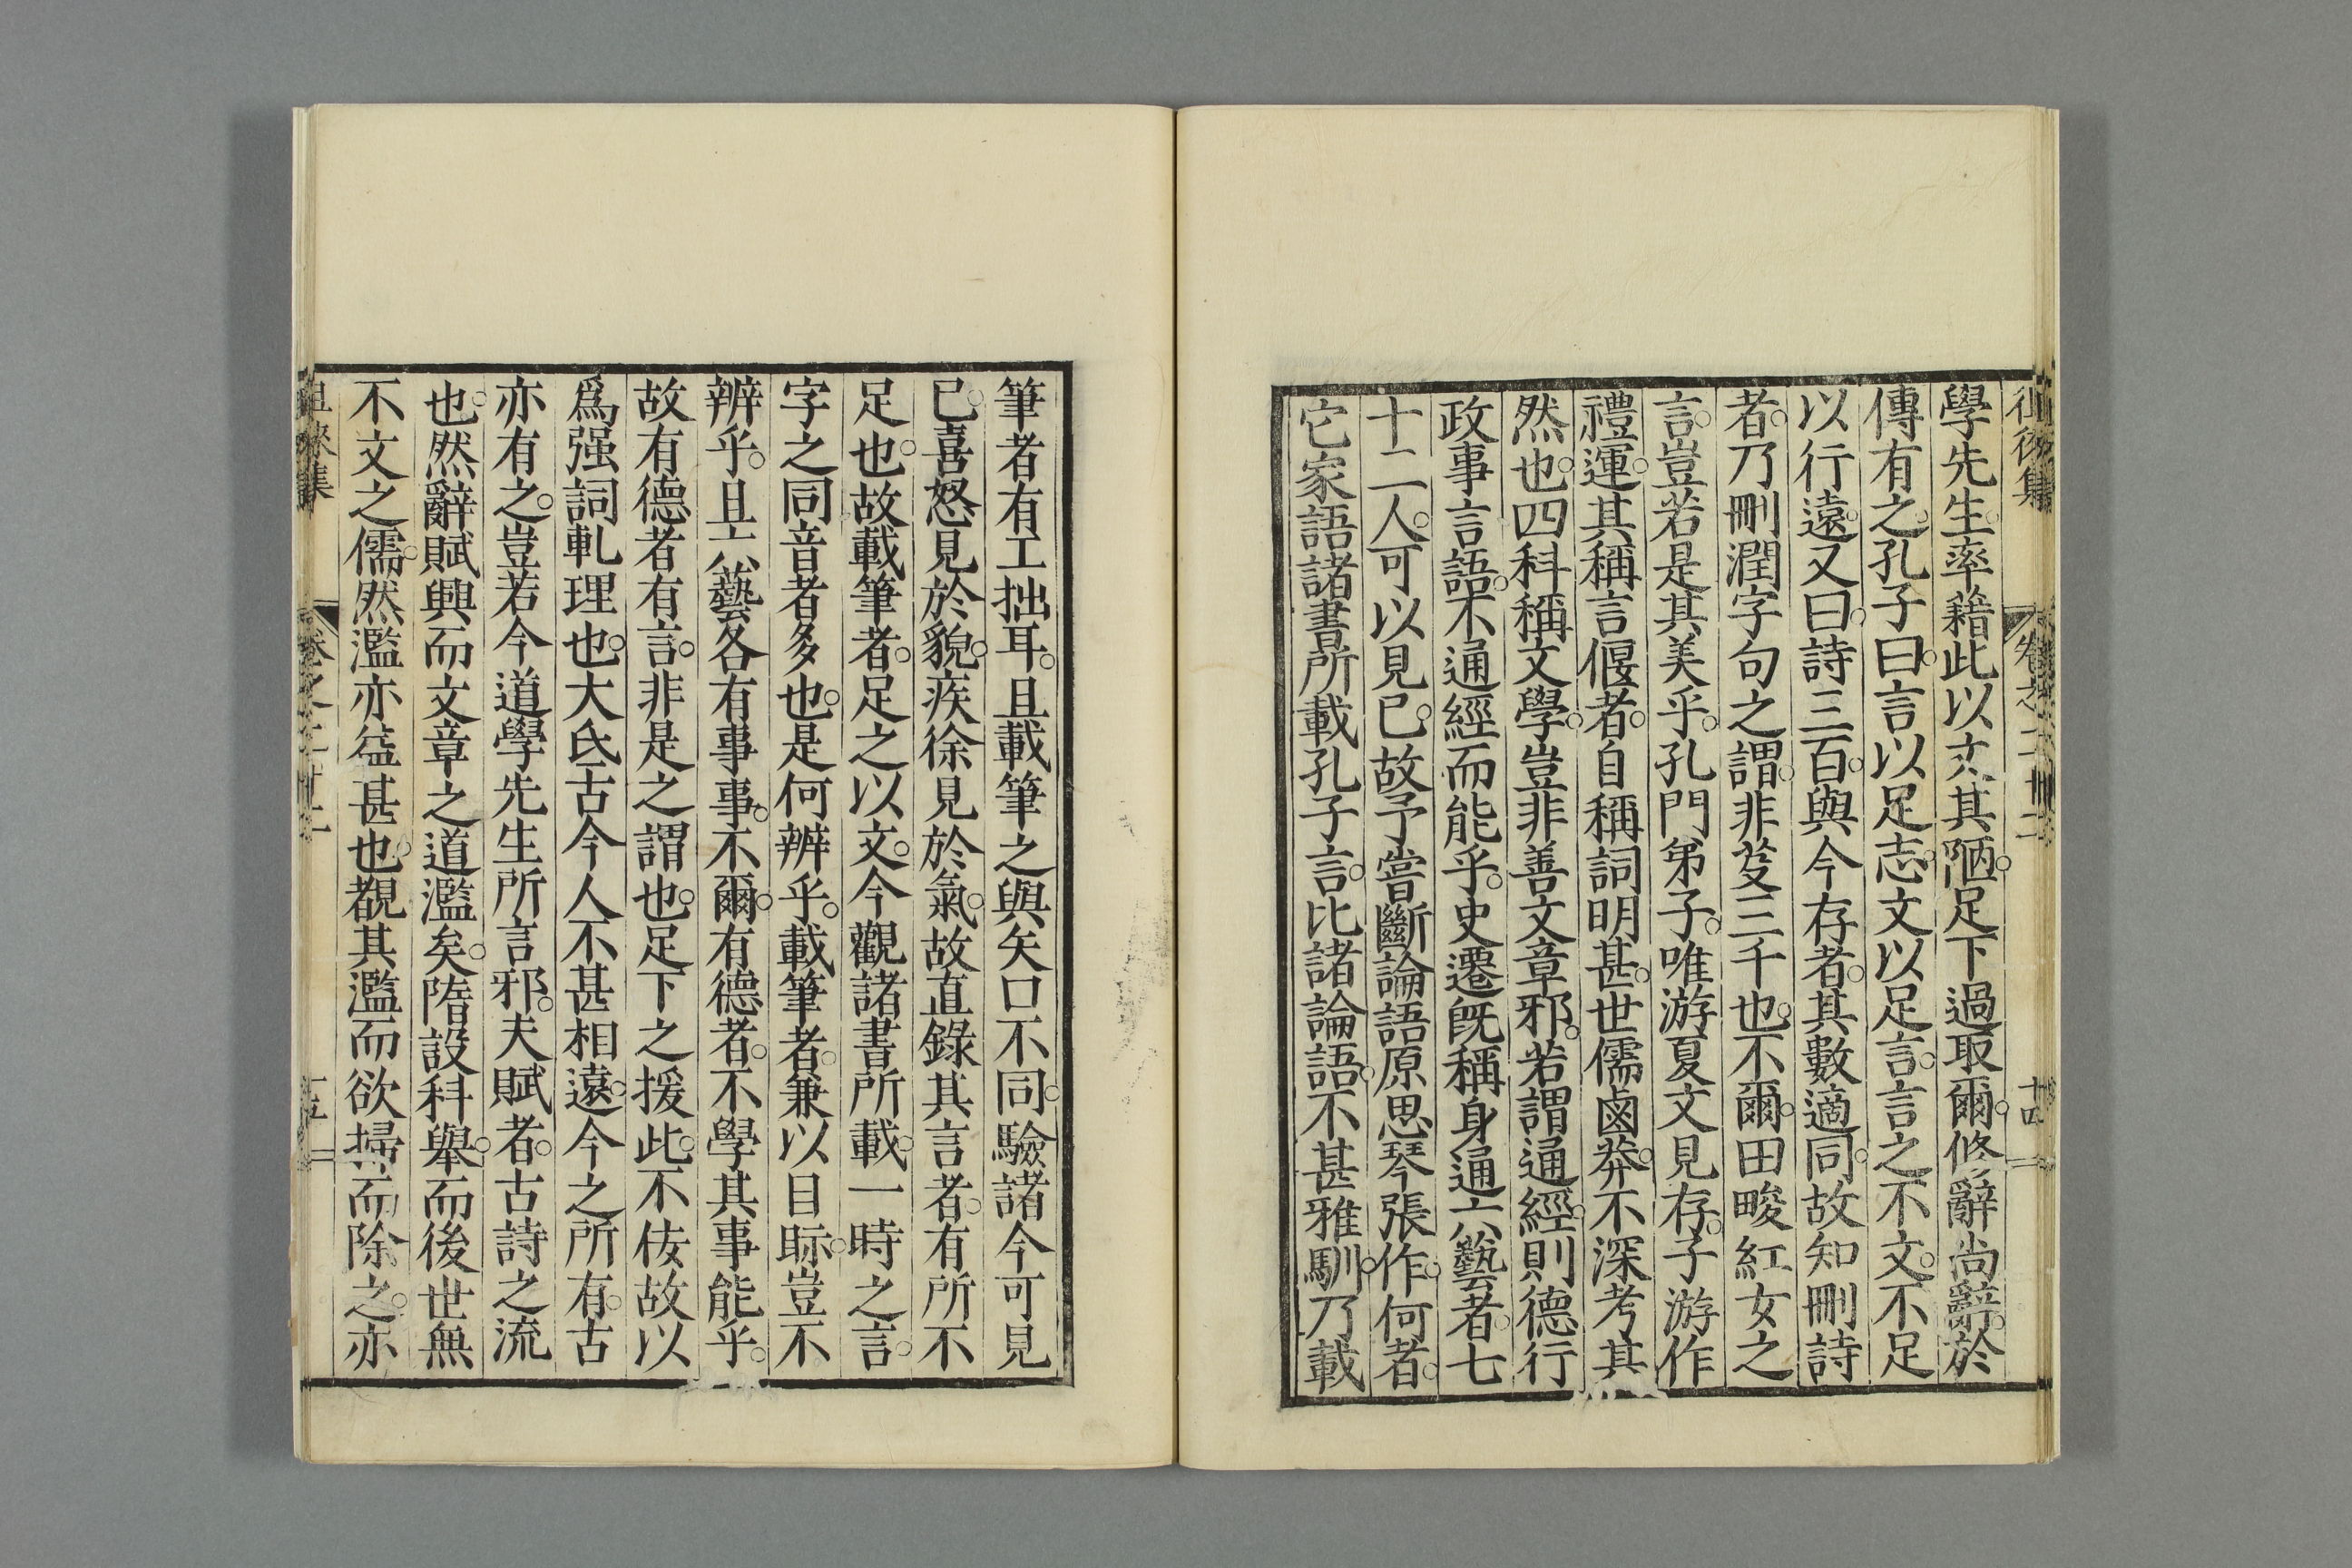 學先生率藉此以文其陋足下過取爾修辭尚辭於
傳有之孔子曰言以足志文以足言言之不文不足
以行遠又曰詩三百與今存者其數適同故知刪詩
者乃刪潤字句之謂非芟三千也不爾田畯紅女之
言豈若是其美乎孔門弟子唯游夏文見存子游作
禮運其稱言偃者自稱詞明甚世儒鹵莽不深考其
然也四科稱文學豈非善文章邪若謂通經則德行
政事言語不通經而能乎史遷既稱身通六藝者七
十二人可以見已故予嘗斷論語原思琴張作何者
它家語諸書所載孔子言比諸論語不甚雅馴乃載
筆者有工拙耳且載筆之與矢口不同驗諸今可見
已喜怒見於貌疾徐見於氣故直錄其言者有所不
足也故載筆者足之以文今觀諸書所載一時之言
字之同音者多也是何辨乎載筆者兼以目眎豈不
辨乎且六藝各有事事不爾有德者不學其事能乎
故有德者有言非是之謂也足下之援此不佞故以
爲强詞軋理也大氐古今人不甚相遠今之所有古
亦有之豈若今道學先生所言邪夫賦者古詩之流
也然辭賦興而文章之道濫矣隋設科舉而後世無
不文之儒然濫亦益甚也覩其濫而欲掃而除之亦
徂徠集 卷之二十二 十五